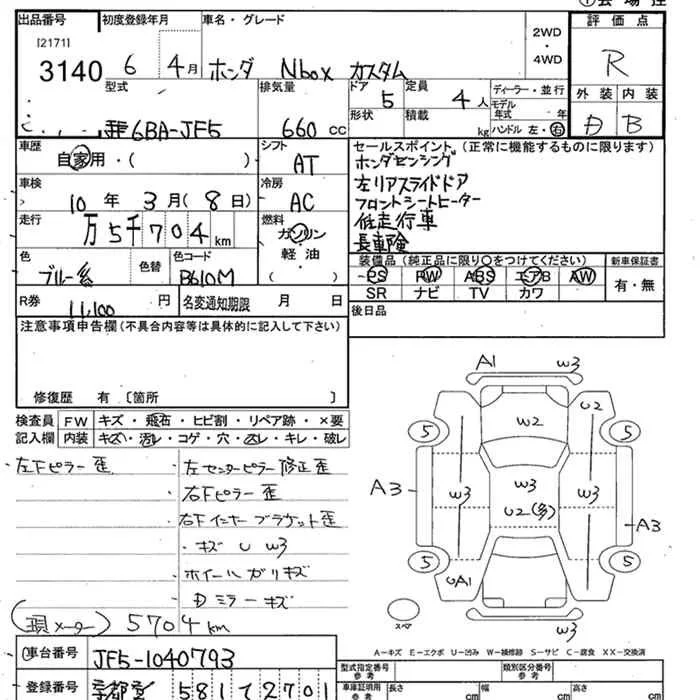 会場控
出品番号 初度登録年月 車名・グレード 評価点
[2171]
3140 6年 4月 ホンダ Nbox カスタム 2WD・4WD R
型式 排気量 ドア 5 定員 4人 ディーラー・並行 外装 内装
6BA-JF5 660cc 形状 積載 kg モデル年式 年 ハンドル 左・右 D B
車歴 自家用・( ) シフト AT セールスポイント(正常に機能するものに限ります)
ホンダセンシング
車検 10年 3月(8日) 冷房 AC 左リアスライドドア
フロントシートヒーター
走行 万5千704km 燃料 ガソリン 低走行車
軽油 長車険
( )
色 ブルー系 色替 色コード B610M
装備品(純正品に限り○をつけてください) 新車保証書
PS PW ABS エアB AW 有・無
SR ナビ TV カワ
R券 11,100円 名変通知期限 月 日 後日品
注意事項申告欄(不具合内容等は具体的に記入して下さい)
修復歴 有 〔箇所 〕
検査員 FW キズ・飛石・ヒビ割・リペア跡・×要
記入欄 内装 キズ・汚レ・コゲ・穴・スレ・キレ・破レ
・左Fピラー歪 ・左センターピラー修正歪
・右Fピラー歪
・右FインナーブラケットE歪
・キズ U W3
・ホイールガリキズ
・Dミラーキズ
(現メーター) 5704km
A1 W3
W2 U2
5 5
A3 W3 W3 W3 A3
U2(多)
5 5
UA1
スペア W3
A-キズ E-エクボ U-凹み W-補修跡 S-サビ C-腐食 XX-交換済
車台番号 JF5-1040793
型式指定番号 参考 類別区分番号 参考
登録番号 京都 581 て 2701
車庫証明用 参考 長さ 幅 高さ cm